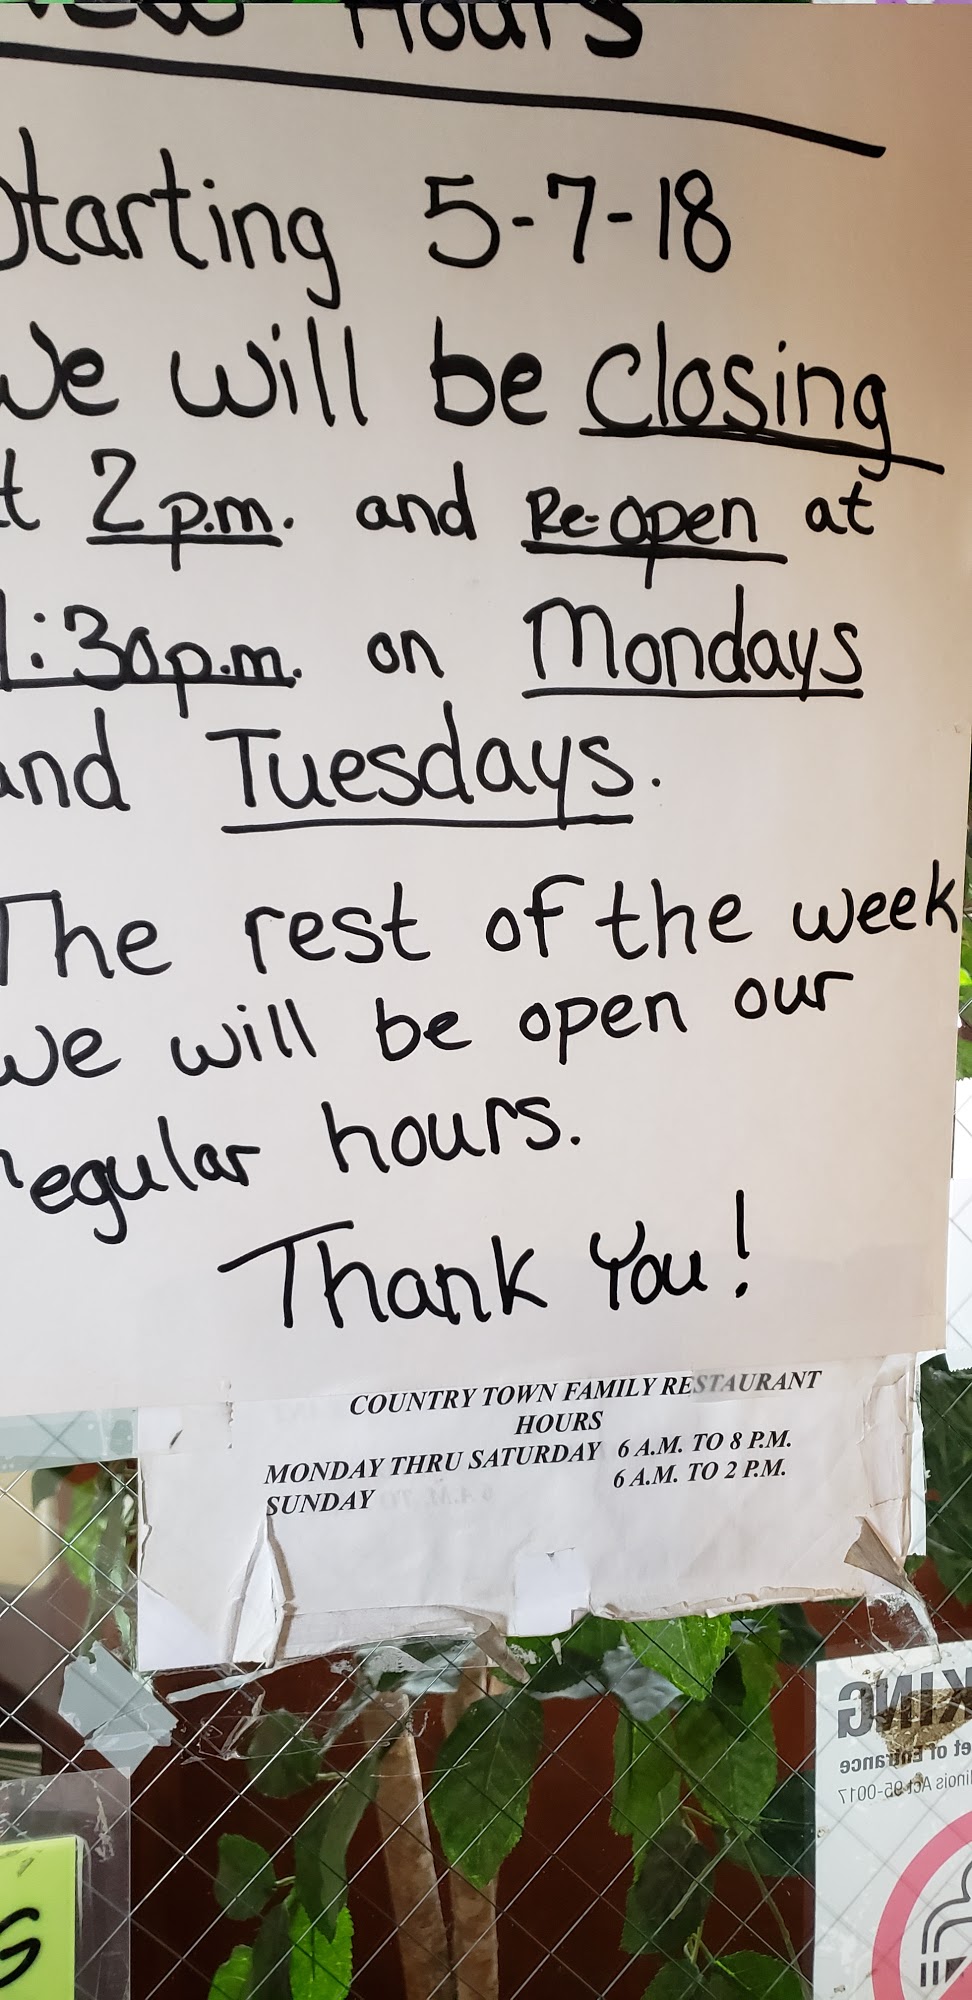 New Hours
Starting 5-7-18
We will be Closing
at 2 p.m. and Re-open at
:30 p.m. on Mondays
and Tuesdays.
The rest of the week
we will be open our
regular hours.
Thank You!
COUNTRY TOWN FAMILY RESTAURANT
HOURS
MONDAY THRU SATURDAY 6 A.M. TO 8 P.M.
SUNDAY 6 A.M. TO 2 P.M.
KING
et of Entrance
linois Act 95-0017
G